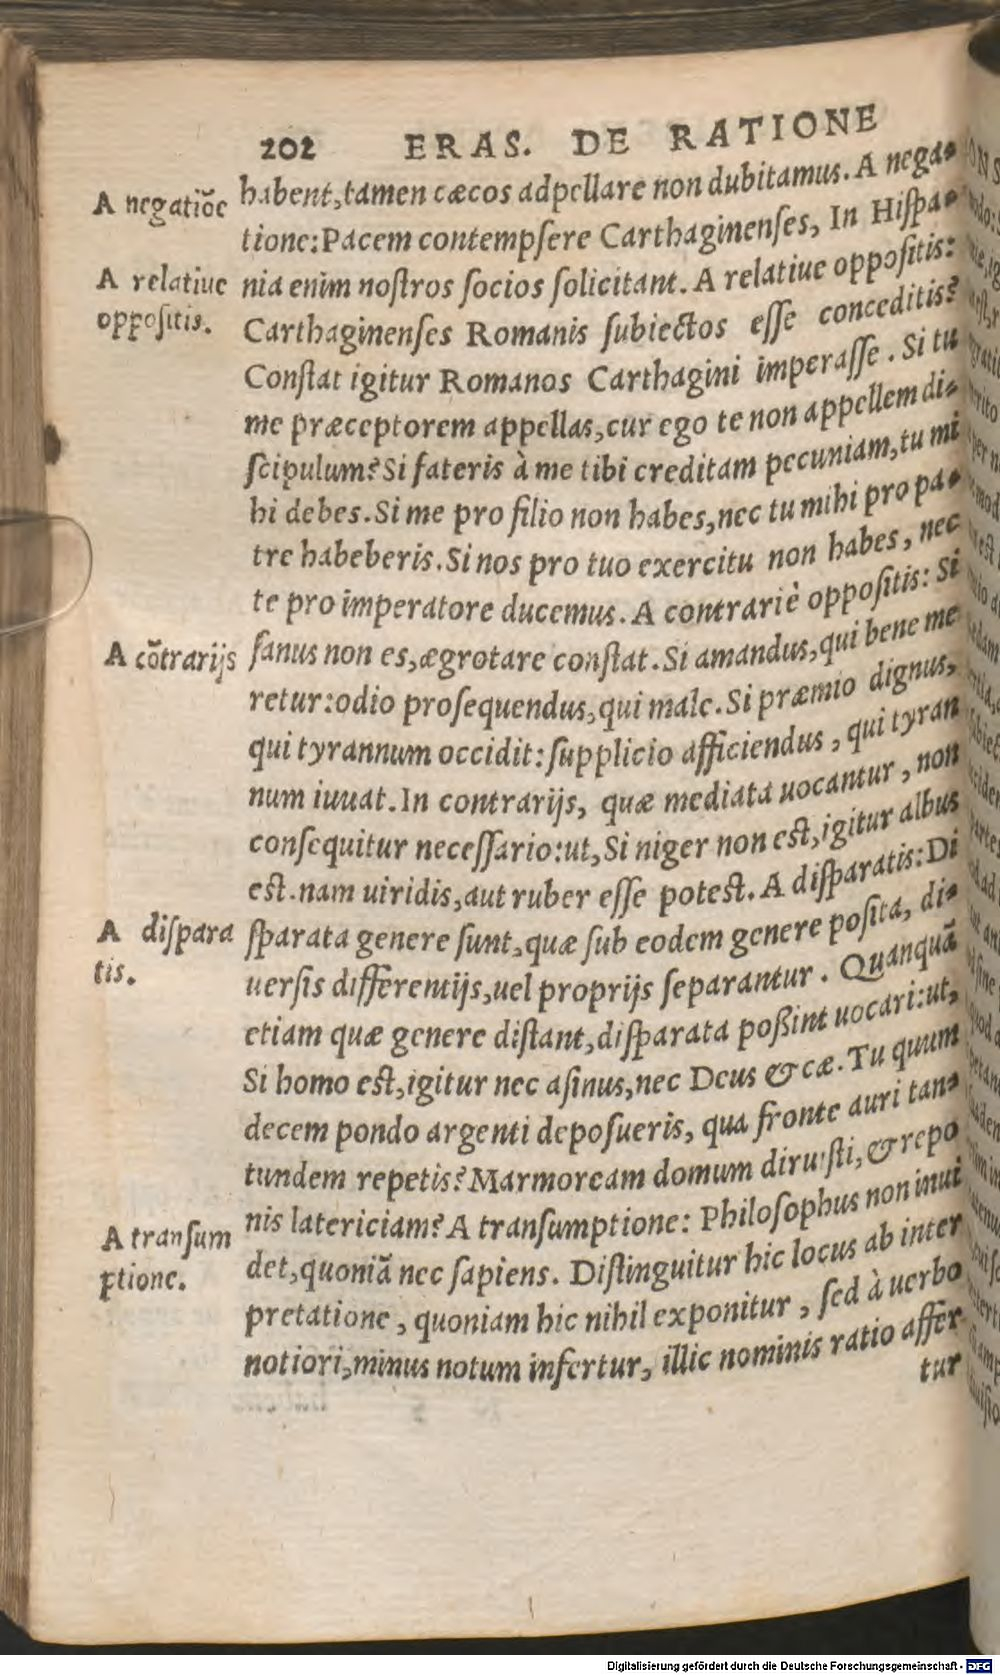 202 ERAS. DE RATIONE
habent,tamen cæcos adpellare non dubitamus. A nega-
A negatiõe
tione:Pacem contempsere Carthaginenses, In Hispa-
A relatiue
nia enim nostros socios solicitant. A relatiue oppositis:
oppositis.
Carthaginenses Romanis subiectos esse conceditis?
Constat igitur Romanos Carthagini imperasse. Si tu
me præceptorem appellas,cur ego te non appellem di-
scipulum? Si fateris à me tibi creditam pecuniam,tu mi
hi debes.Si me pro filio non habes,nec tu mihi pro pa-
tre habeberis.Si nos pro tuo exercitu non habes, nec
te pro imperatore ducemus. A contrariè oppositis: Si
A cõtrarijs
sanus non es,ægrotare constat.Si amandus,qui bene me
retur:odio prosequendus,qui male.Si præmio dignus,
qui tyrannum occidit:supplicio afficiendus, qui tyran
num iuuat.In contrarijs, quæ mediata uocantur, non
consequitur necessario:ut,Si niger non est,igitur albus
est.nam uiridis,aut ruber esse potest. A disparatis:Di
A dispara
sparata genere sunt,quæ sub eodem genere posita, di-
tis.
uersis differentijs,uel proprijs separantur. Quanquã
etiam quæ genere distant,disparata possint uocari:ut,
Si homo est,igitur nec asinus,nec Deus &cæ. Tu quum
decem pondo argenti deposueris, qua fronte auri tan-
tundem repetis? Marmoream domum dirusti, & repo
nis latericiam? A transumptione: Philosophus non inui
A transum
det,quoniã nec sapiens. Distinguitur hic locus ab inter
ptione.
pretatione, quoniam hic nihil exponitur, sed à uerbo
notiori,minus notum infertur, illic nominis ratio affer
tur
Digitalisierung gefördert durch die Deutsche Forschungsgemeinschaft - DFG